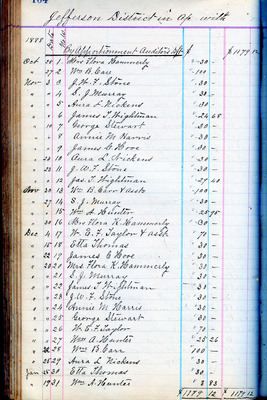 104
Jefferson District in Ap. with
1888 Date No.
By Apportionment Auditors $ $1179.12
Oct 20 1 Mrs Flora Hammerly " 30 -
" 27 2 Wm B. Carr " 100 -
Nov 3 3 J. W. F. Stone " 30 -
" " 4 S. J. Murray " 30 -
" " 5 Aura L. Nickens " 30 -
" " 6 James T. Hightman " 24 65
" 10 7 George Stewart " 30 -
" " 8 Annie M. Harris " 30 -
" " 9 James C. Hooe " 30 -
" 20 10 Aura L. Nickens " 30 -
" " 11 J. W. F. Stone " 30 -
" " 12 Jas. T. Hightman " 27 40
Nov 20 13 Wm B. Carr & assts " 100 -
" 27 14 S. J. Murray " 30 -
" " 15 Wm A. Hunter " 25 95
" 30 16 Mrs Flora K. Hammerly " 30 -
Dec 4 17 W. E. F. Taylor & asst " 70 -
" 15 18 Etta Thomas " 30 -
" 22 19 James C. Hooe " 30 -
" 20 20 Mrs Flora K. Hammerly " 30 -
" " 21 S. J. Murray " 30 -
" " 22 James T. Hightman " 30 -
" " 23 J. W. F. Stone " 30 -
" " 24 Annie M. Harris " 30 -
" " 25 George Stewart " 30 -
" " 26 W. E. F. Taylor " 70 -
" " 27 Wm A. Hunter " 25 26
" " 28 Wm B. Carr 100 -
" 25 29 Aura L. Nickens " 30 -
Jan 25 30 Etta Thomas " 30 -
" 19 31 Wm A. Hunter
$1179 12 $1179 12